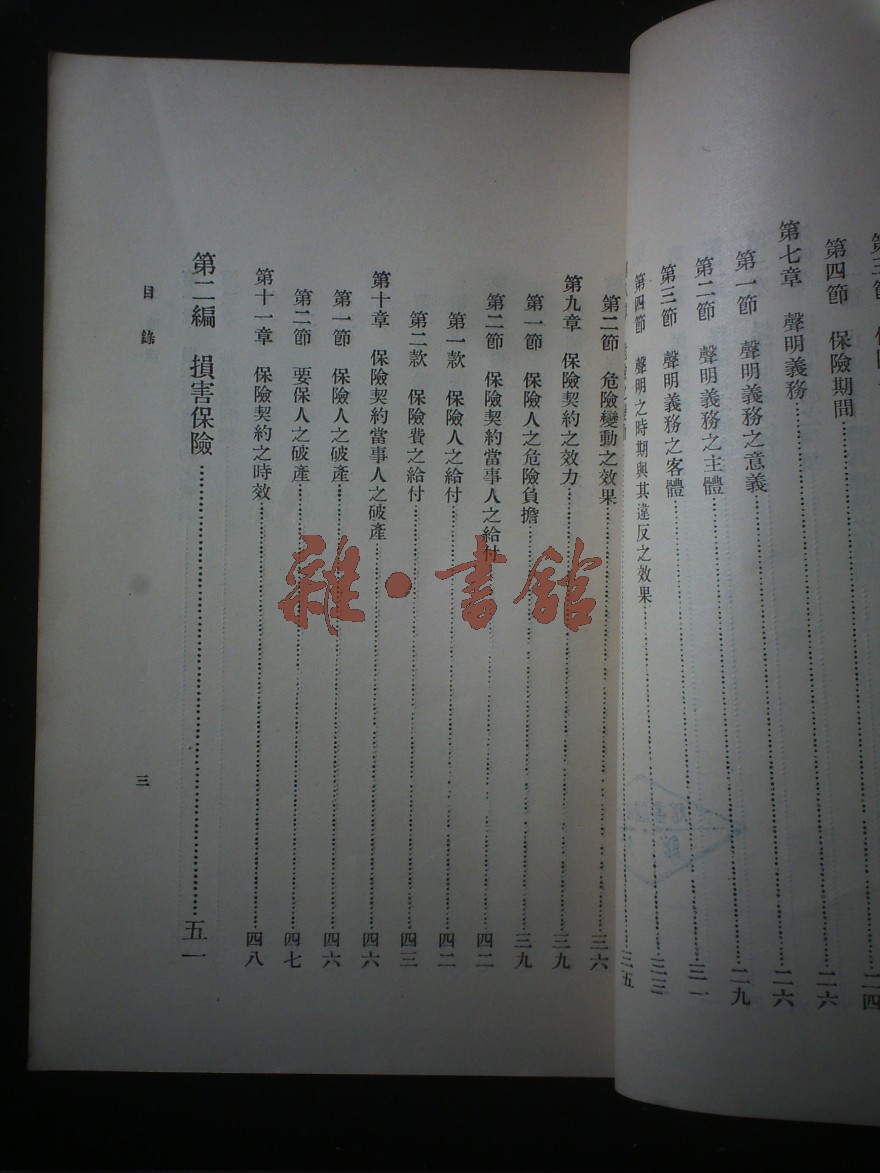 第四節　保險期間……二六
第七章　聲明義務……二六
第一節　聲明義務之意義……二九
第二節　聲明義務之主體……三一
第三節　聲明義務之客體……三三
第四節　聲明之時期與其違反之效果……三五
第二節　危險變動之效果……三六
第九章　保險契約之效力……三九
第一節　保險人之危險負擔……三九
第二節　保險契約當事人之給付……四二
第一款　保險人之給付……四二
第二款　保險費之給付……四三
第十章　保險契約當事人之破產……四六
第一節　保險人之破產……四六
第二節　要保人之破產……四七
第十一章　保險契約之時效……四八
第二編　損害保險……五一
目錄
三
雜·書館